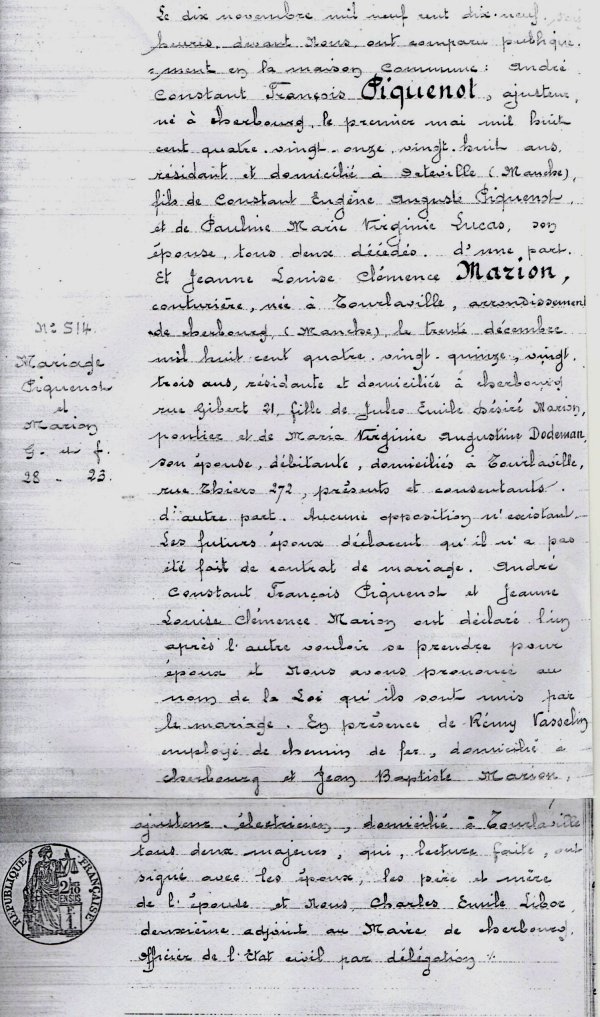 Le dix novembre mil neuf cent dix-neuf, seize
heures, devant Nous, ont comparu publique-
-ment en la maison Commune: André
Constant François Piquenot, ajusteur,
né à Cherbourg, le premier mai mil huit
cent quatre-vingt-onze, vingt-huit ans,
résidant et domicilié à (Manche),
fils de Constant Eugène Auguste Piquenot,
et de Pauline Marie Virginie Lucas, son
épouse, tous deux décédés. d'une part.
Et Jeanne Louise Clémence Marion,
couturière, née à Tourlaville, arrondissement
de Cherbourg, (Manche), le trente décembre
mil huit cent quatre-vingt-quinze, vingt-
trois ans, résidante et domiciliée à Cherbourg
rue Gibert 21, fille de Jules Emile Désiré Marion,
pontier et de Maria Virginie Augustine Dodeman,
son épouse, débitante, domiciliés à Tourlaville,
rue Thiers 272, présents et consentants.
d'autre part. Aucune opposition n'existant.
Les futurs époux déclarent qu'il n'a pas
été fait de contrat de mariage. André
Constant François Piquenot et Jeanne
Louise Clémence Marion ont déclaré l'un
après l'autre vouloir se prendre pour
époux et Nous avons prononcé au
nom de la Loi qu'ils sont unis par
le mariage. En présence de Rémy Vasselin
employé de chemin de fer, domicilié à
Cherbourg et Jean Baptiste Marion,
ajusteur électricien, domicilié à Tourlaville
tous deux majeurs, qui, lecture faite, ont
signé avec les époux, les père et mère
de l'épouse et Nous, Charles Emile Libor,
deuxième adjoint au Maire de Cherbourg,
officier de l'Etat civil par délégation
N° 514.
Mariage
Piquenot
et
Marion
G. et f.
28 - 23.
RÉPUBLIQUE FRANÇAISE